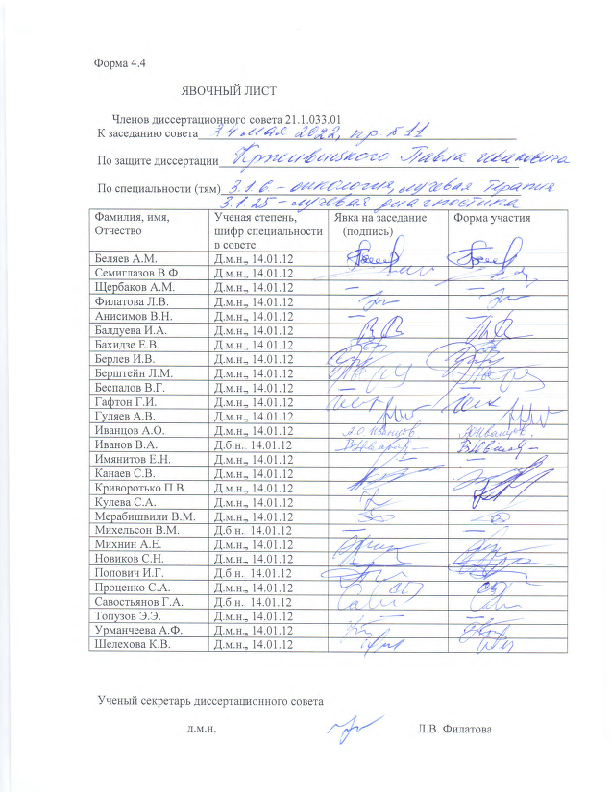 Форма 4.4
ЯВОЧНЫЙ ЛИСТ
Членов диссертационного совета 21.1.033.01
К заседанию совета 24 мая 2022, пр. №11
По защите диссертации Павла Ивановича
По специальности (тям) 3.1.6 – онкология, лучевая терапия
3.1.25 – лучевая диагностика
Фамилия, имя, Отчество Ученая степень, шифр специальности в совете Явка на заседание (подпись) Форма участия
Беляев А.М. Д.м.н., 14.01.12
Семиглазов В.Ф. Д.м.н., 14.01.12
Щербаков А.М. Д.м.н., 14.01.12
Филатова Л.В. Д.м.н., 14.01.12
Анисимов В.Н. Д.м.н., 14.01.12
Балдуева И.А. Д.м.н., 14.01.12
Бахидзе Е.В. Д.м.н., 14.01.12
Берлев И.В. Д.м.н., 14.01.12
Берштейн Л.М. Д.м.н., 14.01.12
Беспалов В.Г. Д.м.н., 14.01.12
Гафтон Г.И. Д.м.н., 14.01.12
Гуляев А.В. Д.м.н., 14.01.12
Иванцов А.О. Д.м.н., 14.01.12
Иванов В.А. Д.б.н., 14.01.12
Имянитов Е.Н. Д.м.н., 14.01.12
Канаев С.В. Д.м.н., 14.01.12
Криворотько П.В. Д.м.н., 14.01.12
Кулева С.А. Д.м.н., 14.01.12
Мерабишвили В.М. Д.м.н., 14.01.12
Михельсон В.М. Д.б.н. 14.01.12
Михнин А.Е. Д.м.н., 14.01.12
Новиков С.Н. Д.м.н., 14.01.12
Попович И.Г. Д.б.н. 14.01.12
Проценко С.А. Д.м.н., 14.01.12
Савостьянов Г.А. Д.б.н. 14.01.12
Топузов Э.Э. Д.м.н., 14.01.12
Урманчеева А.Ф. Д.м.н., 14.01.12
Шелехова К.В. Д.м.н., 14.01.12
Ученый секретарь диссертационного совета
д.м.н. Л.В. Филатова